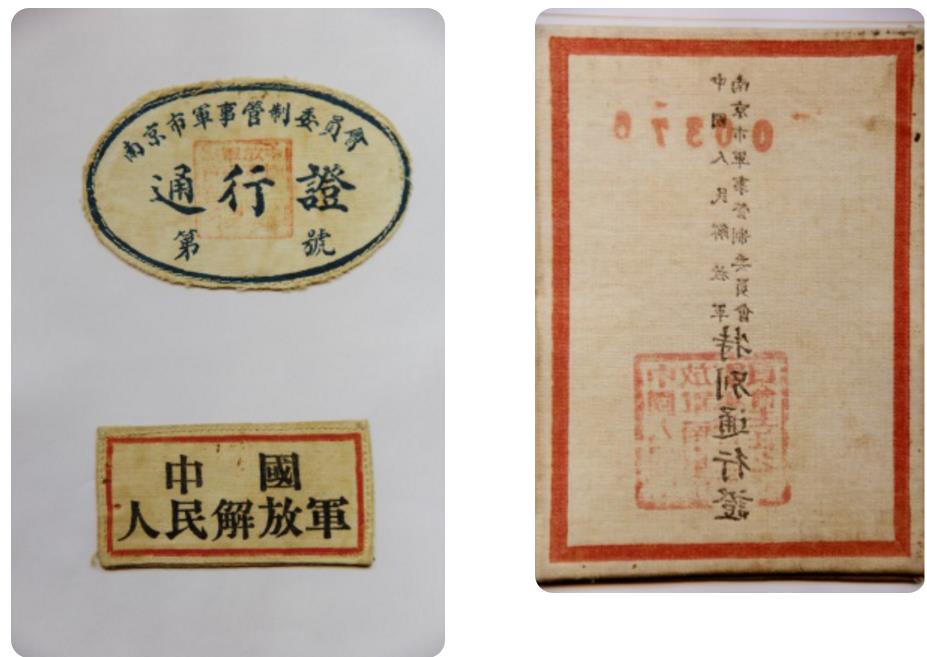 南京市軍事管制委員會
通行證
第 號
中國
人民解放軍
南京市軍事管制委員會
中國人民解放軍
特別通行證